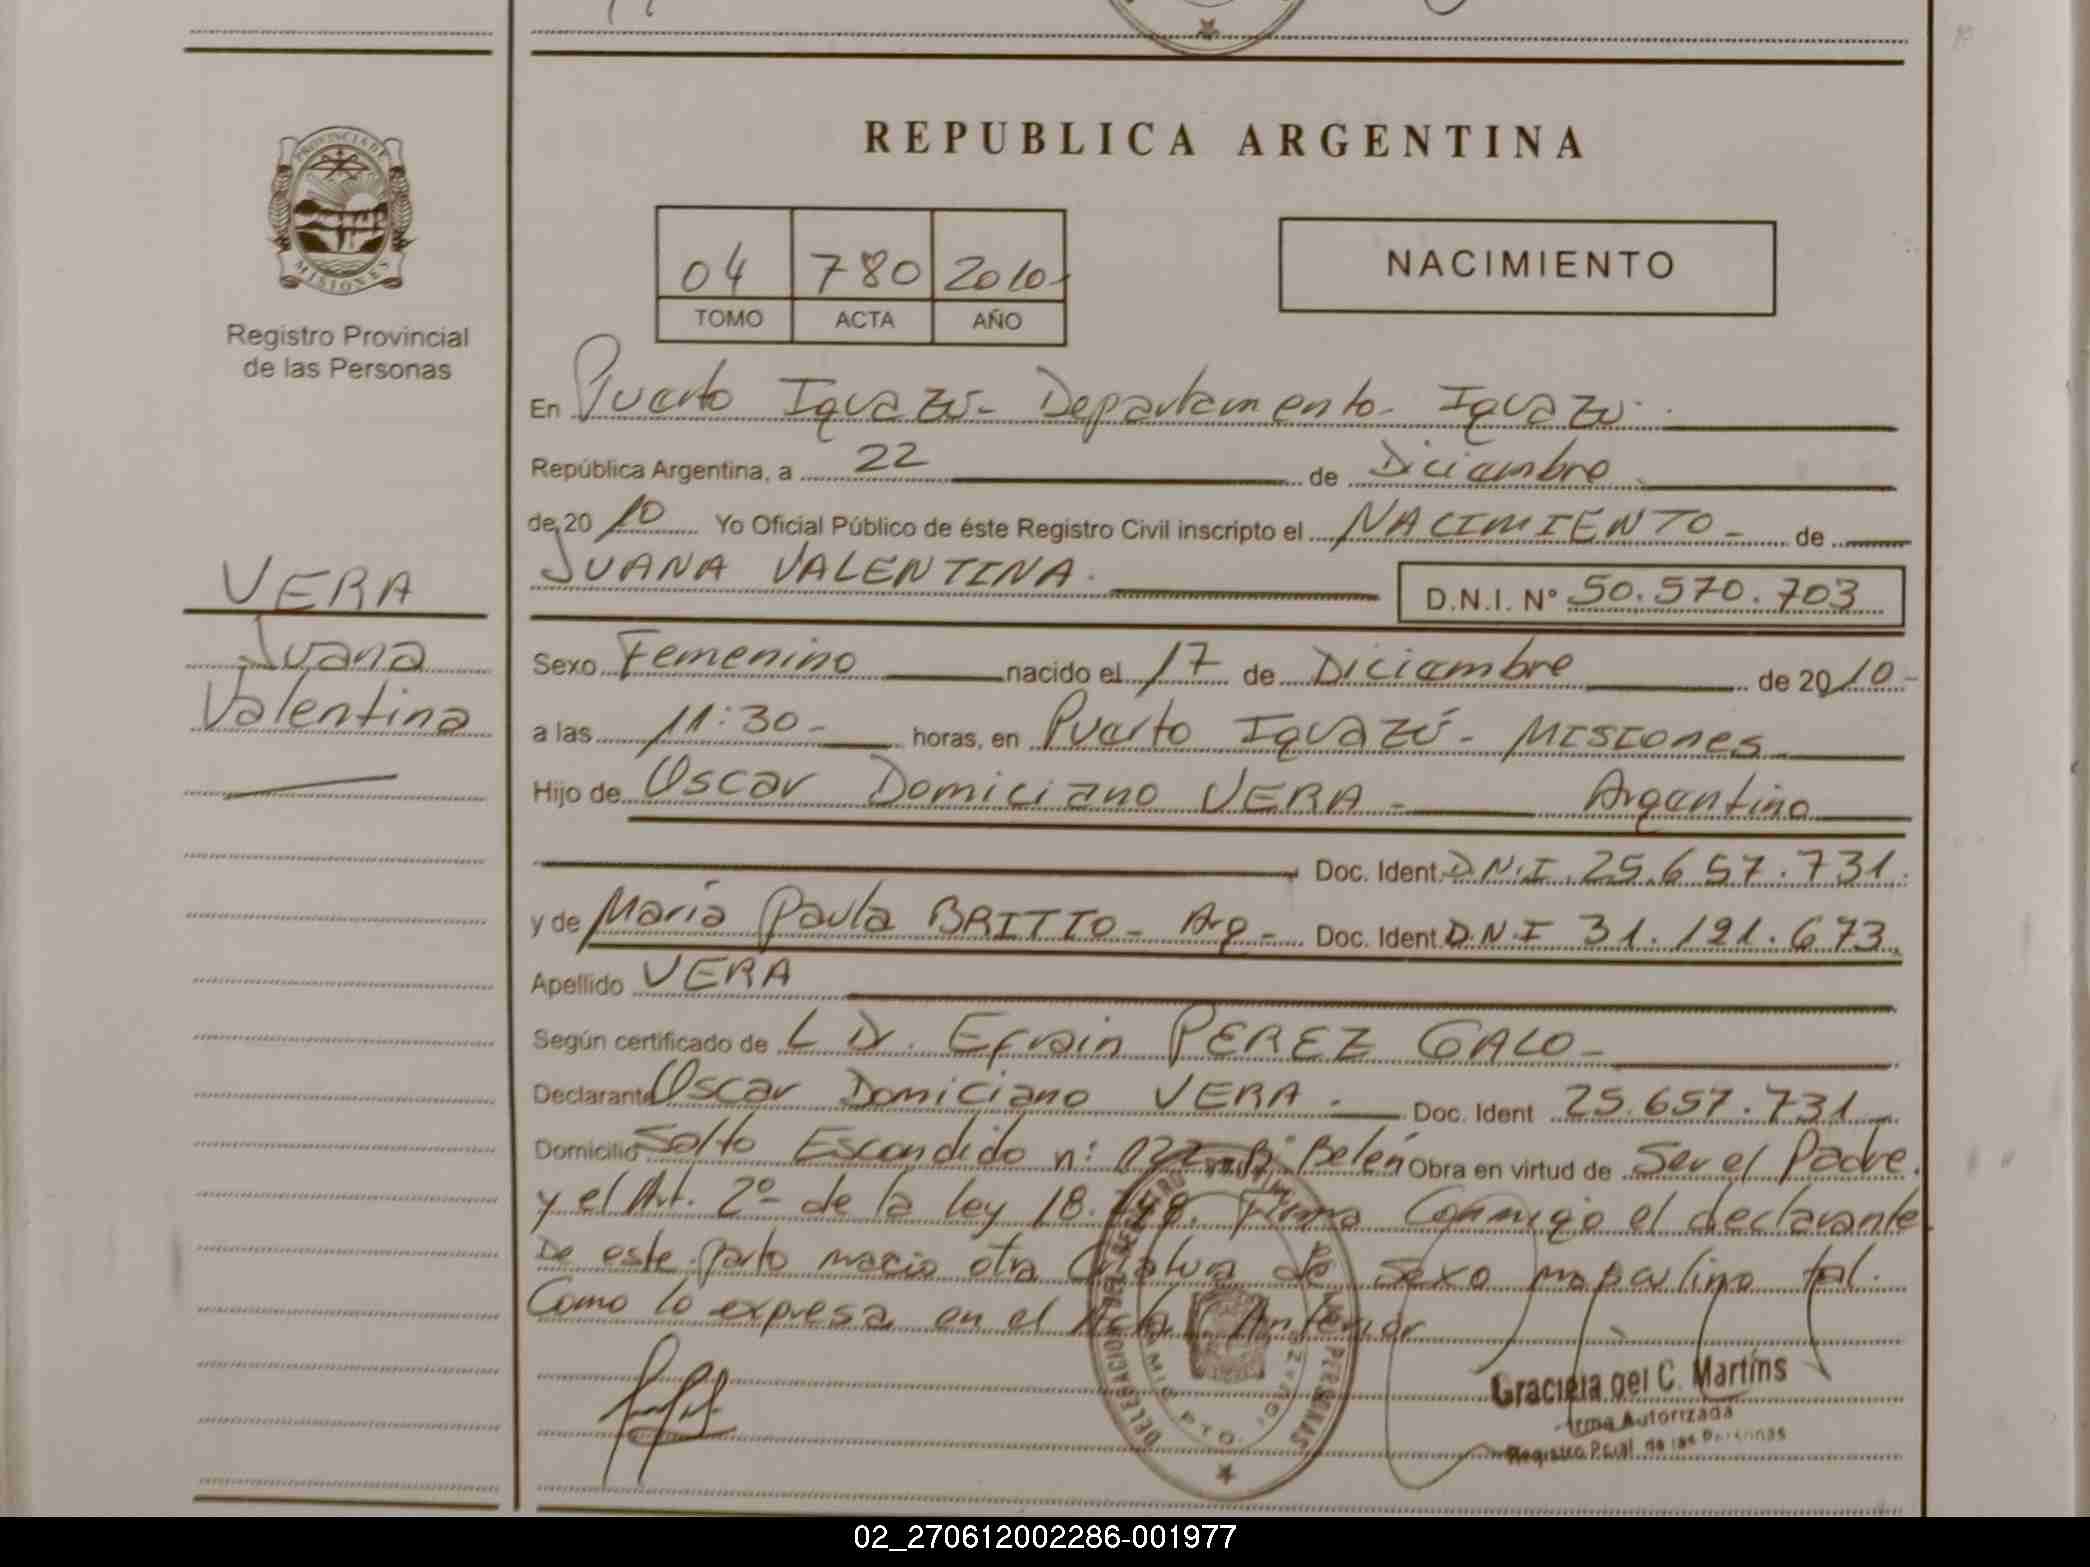 PROVINCIA DE
MISIONES
Registro Provincial
de las Personas
VERA
Juana
Valentina
REPUBLICA ARGENTINA
04 780 2010-
TOMO ACTA AÑO
NACIMIENTO
En Puerto Iguazú- Departamento- Iguazú.
República Argentina, a 22 de Diciembre
de 20 10 Yo Oficial Público de éste Registro Civil inscripto el NACIMIENTO- de
JUANA VALENTINA. D.N.I. N° 50.570.703
Sexo Femenino nacido el 17 de Diciembre de 2010-
a las 11:30- horas, en Puerto Iguazú- Misiones
Hijo de Oscar Domiciano VERA- Argentino
Doc. Ident. D.N.I. 25.657.731.
y de María Paula BRITTO- Arg- Doc. Ident. D.N.I 31.121.673
Apellido VERA
Según certificado de L Dr. Efrain PEREZ GALO-
Declarante Oscar Domiciano VERA. Doc. Ident 25.657.731
Domicilio Salto Escondido n: Belén Obra en virtud de Ser el Padre.
y el Art. 2º de la ley 18. Firma Conmigo el declarante
De este parto nacio otra Criatura de sexo masculino tal.
Como lo expresa en el Acta Anterior
DELEGACION DEL REGISTRO PERSONAS
PTO. IGUAZU
Graciela del C. Martins
Firma Autorizada
Registro Pcial. de las Personas
02_270612002286-001977